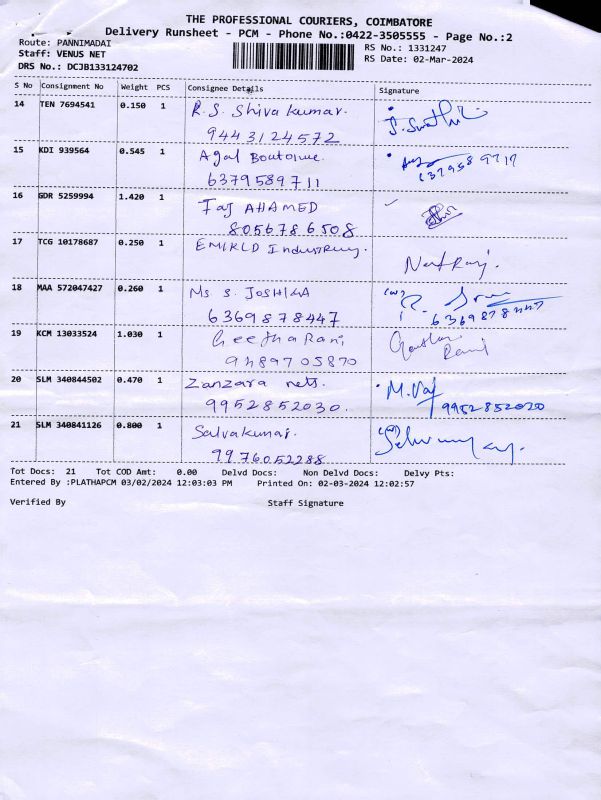 THE PROFESSIONAL COURIERS, COIMBATORE
Delivery Runsheet - PCM - Phone No.:0422-3505555 - Page No.:2
Route: PANNIMADAI
RS No.: 1331247
Staff: VENUS NET
RS Date: 02-Mar-2024
DRS No.: DCJB133124702
S No Consignment No Weight PCS Consignee Details Signature
14 TEN 7694541 0.150 1 R.S. Shiva kumar.
9443124572
15 KDI 939564 0.545 1 Agal Boutique
6379589711
16 GDR 5259994 1.420 1 Taj AHAMED
8056786508
17 TCG 10178687 0.250 1 EMIRLD Industry.
Natraj.
18 MAA 572047427 0.260 1 Ms. S. JOSHIKA
6369878447 6369878447
19 KCM 13033524 1.030 1 Geetha Rani
9489705870 Rani
20 SLM 340844502 0.470 1 Zanzara nets.
9952852030. 9952852020
21 SLM 340841126 0.800 1 Selvakumar.
9976052288
Tot Docs: 21 Tot COD Amt: 0.00 Delvd Docs: Non Delvd Docs: Delvy Pts:
Entered By :PLATHAPCM 03/02/2024 12:03:03 PM Printed On: 02-03-2024 12:02:57
Verified By Staff Signature